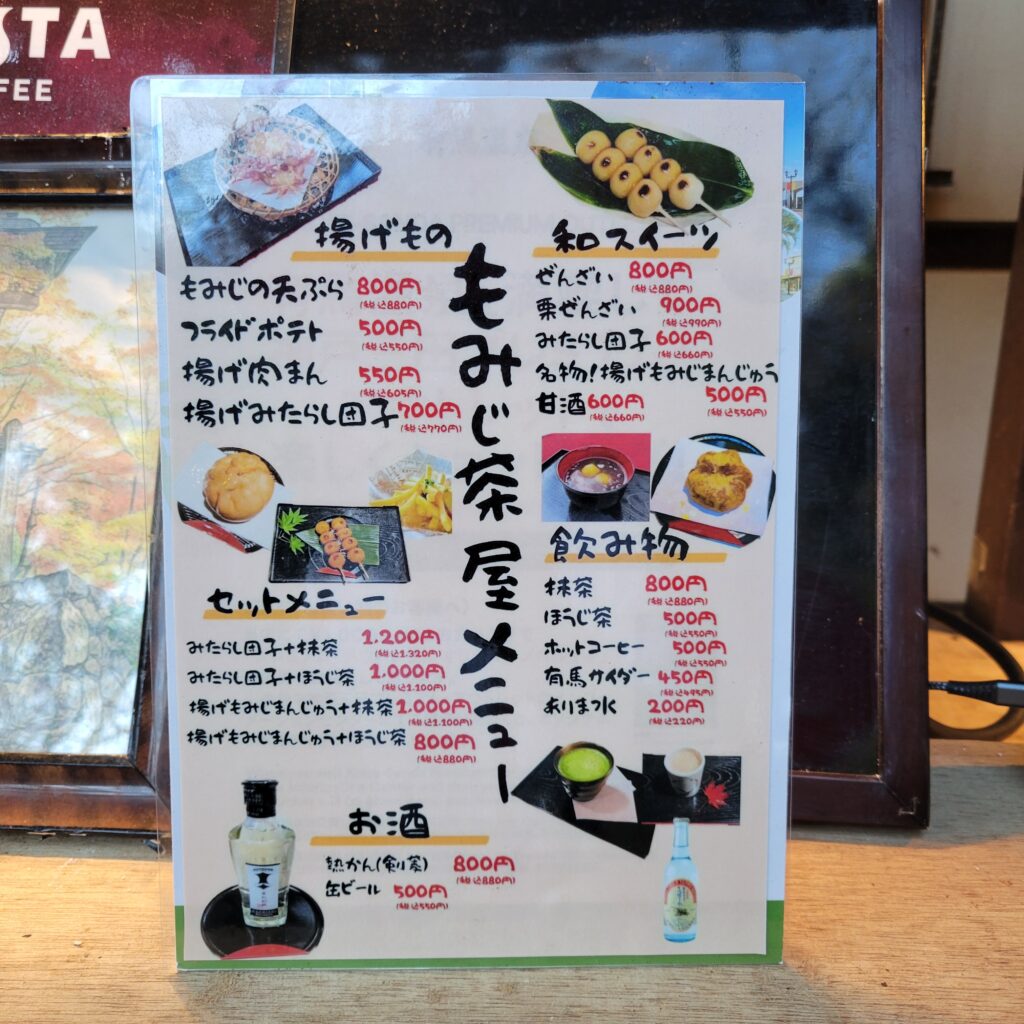 STA
FFEE
もみじ茶屋メニュー
揚げもの
もみじの天ぷら 800円
(税込880円)
フライドポテト 500円
(税込550円)
揚げ肉まん 550円
(税込605円)
揚げみたらし団子 700円
(税込770円)
セットメニュー
みたらし団子+抹茶 1,200円
(税込1.320円)
みたらし団子+ほうじ茶 1,000円
(税込1.100円)
揚げもみじまんじゅう+抹茶 1,000円
(税込1.100円)
揚げもみじまんじゅう+ほうじ茶 800円
(税込880円)
お酒
熱かん(剣菱) 800円
(税込880円)
缶ビール 500円
(税込550円)
和スイーツ
ぜんざい 800円
(税込880円)
栗ぜんざい 900円
(税込990円)
みたらし団子 600円
(税込660円)
名物!揚げもみじまんじゅう
500円
(税込550円)
甘酒 600円
(税込660円)
飲み物
抹茶 800円
(税込880円)
ほうじ茶 500円
(税込550円)
ホットコーヒー 500円
(税込550円)
有馬サイダー 450円
(税込495円)
ありまつ水 200円
(税込220円)